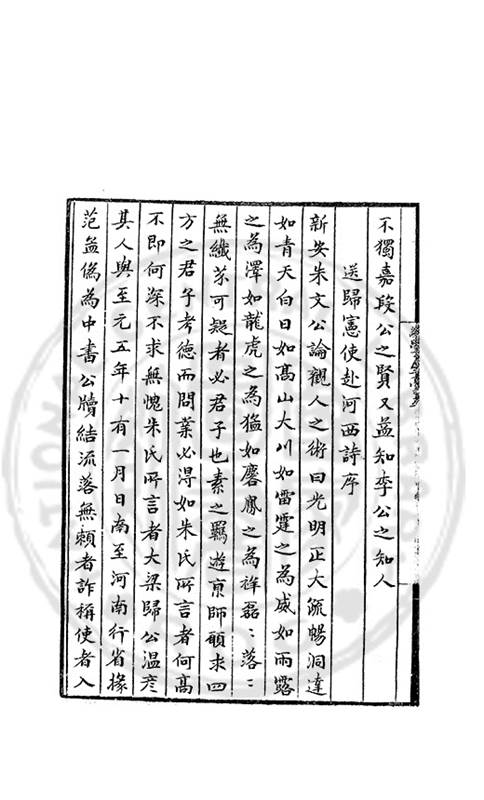 不獨嘉段公之賢又益知李公之知人
送歸憲使赴河西詩序
新安朱文公論觀人之術曰光明正大疏暢洞達
如青天白日如髙山大川如雷霆之為威如雨露
之為澤如龍虎之為猛如麐鳳之為祥磊〻落〻
無纖芥可疑者必君子也素之羈遊京師願求四
方之君子考德而問業必得如朱氏所言者何髙
不即何深不求無愧朱氏所言者大梁歸公溫彦
其人與至元五年十有一月日南至河南行省掾
范孟偽為中書公牘結流落無賴者詐稱使者入